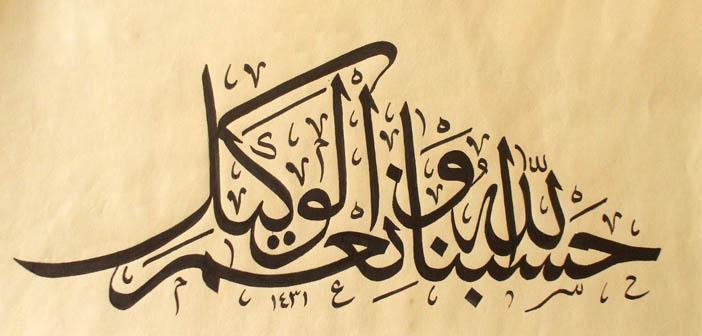 حسبنا الله ونعم الوكيل
١٤٣١